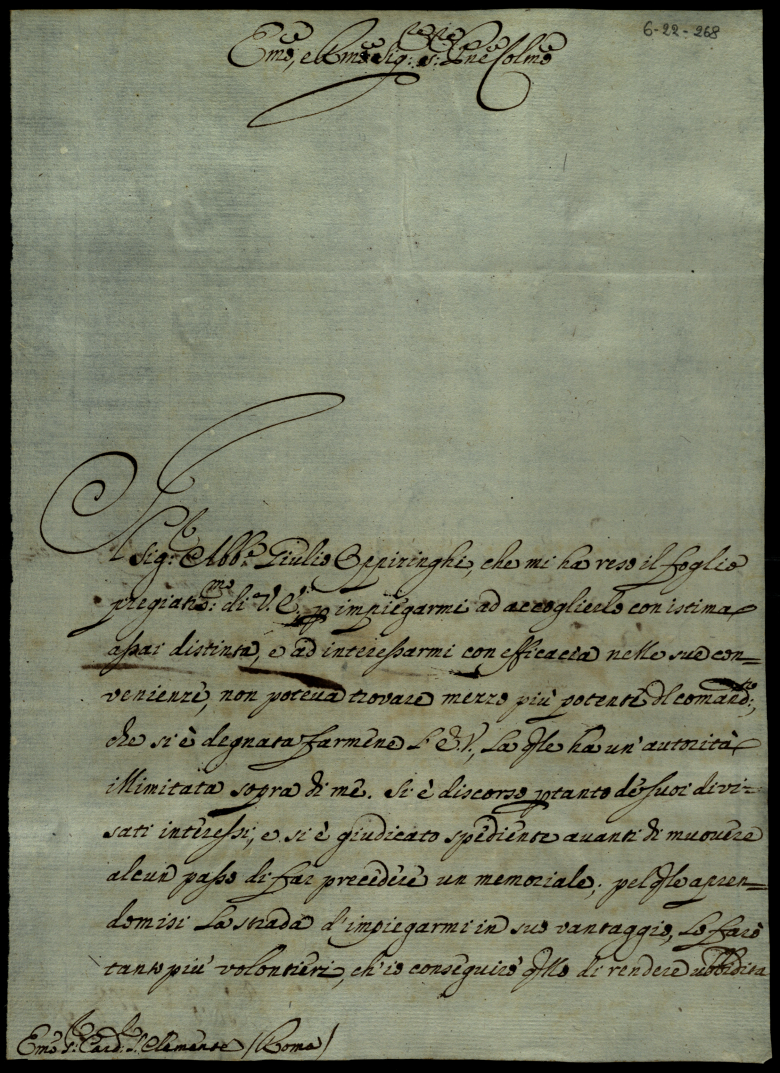 6-22-268
Em.o, e R.mo Sig.r Sig.r P.ne Col.mo
Il Sig.r Abb.e Giulio Oppizinghi, che mi ha reso il foglio
pregiatis.mo: di V. E. p impiegarmi ad accoglierlo con istima
assai distinta, e ad interessarmi con efficacia nelle sue con=
venienze, non poteva trovare mezzo più potente del comand.to,
che si è degnata farmene l'E. V., la qle ha un' autorità
illimitata sopra di me. Si è discorso ptanto de' suoi divi=
sati interessi, e si è giudicato spediente avanti di muovere
alcun passo di far precedere un memoriale; pel qle apren=
domisi la strada d'impiegarmi in suo vantaggio, lo farò
tanto più volontieri, ch'io conseguirò qllo di rendere ubbidita
Em.o S.r Card.le S. Clemente (Roma)